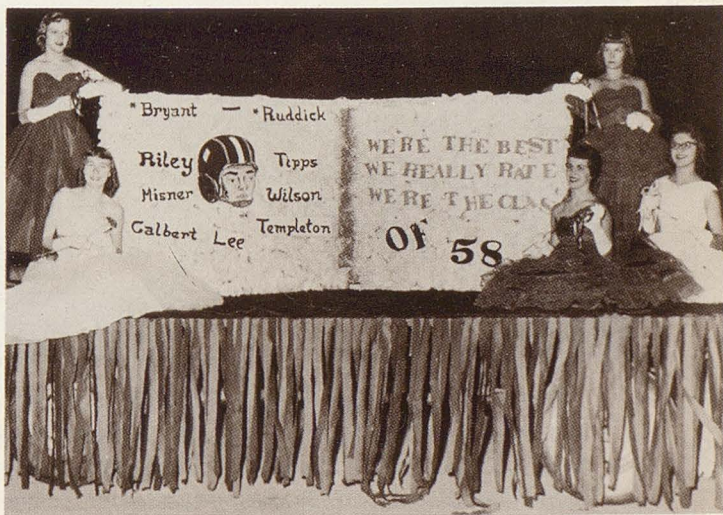 *Bryant — *Ruddick
Riley Tipps
Misner Wilson
Galbert Lee Templeton
WE'RE THE BEST
WE REALLY RATE
WE'RE THE CLASS
OF 58